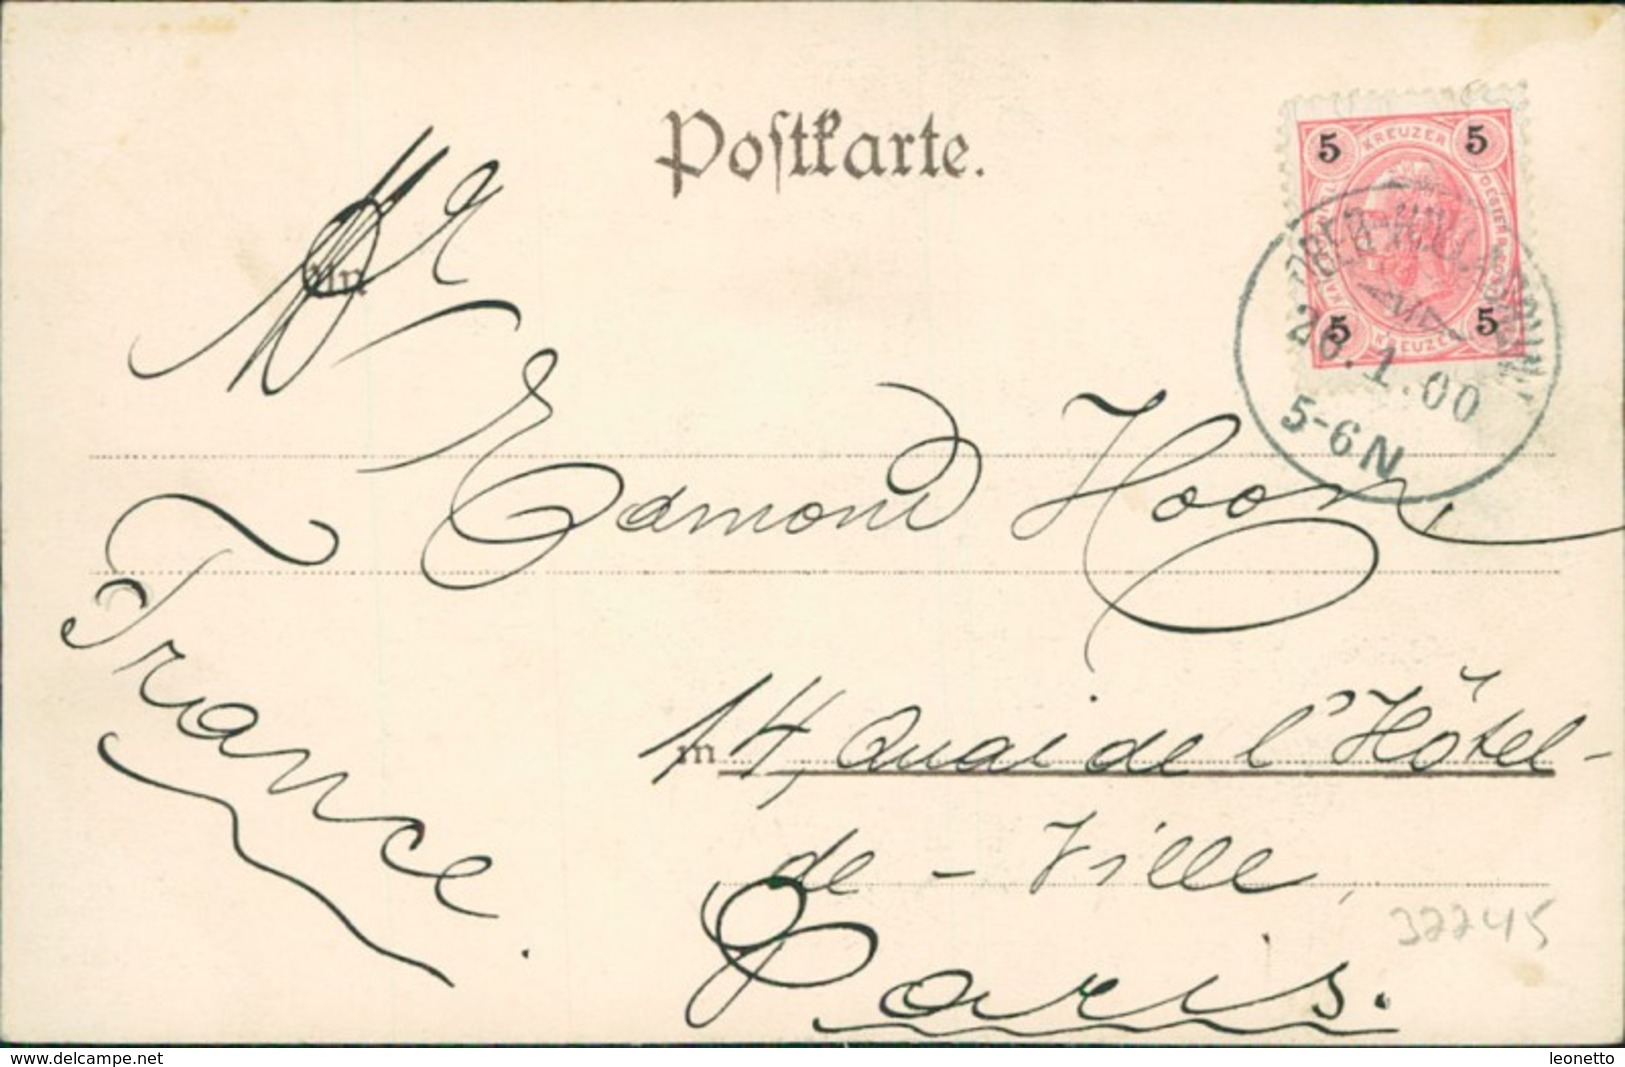 Postkarte.
An
Mr
Edmond Hoon,
in
14, Quai de l'Hôtel-
de-Ville,
Paris.
France.
5 KREUZER 5
5 KREUZER 5
26.1.00
5-6N
32245
www.delcampe.net
leonetto